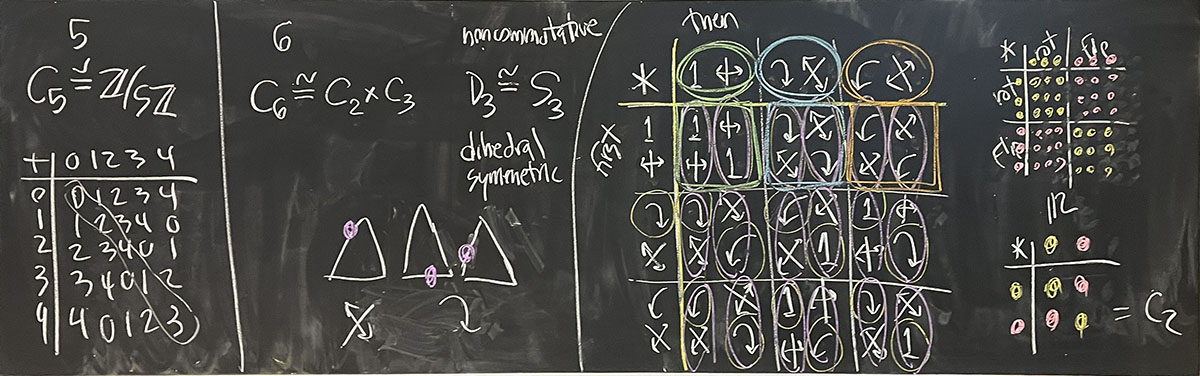 5
C₅ ≅ ℤ/5ℤ
+ 0 1 2 3 4
0 0 1 2 3 4
1 1 2 3 4 0
2 2 3 4 0 1
3 3 4 0 1 2
4 4 0 1 2 3
6
C₆ ≅ C₂ × C₃
noncommutative
D₃ ≅ S₃
dihedral
symmetric
then
first
*
1
1
1
1
1
1
1
1
1
* rot flip
rot
flip
≅
*
= C₂